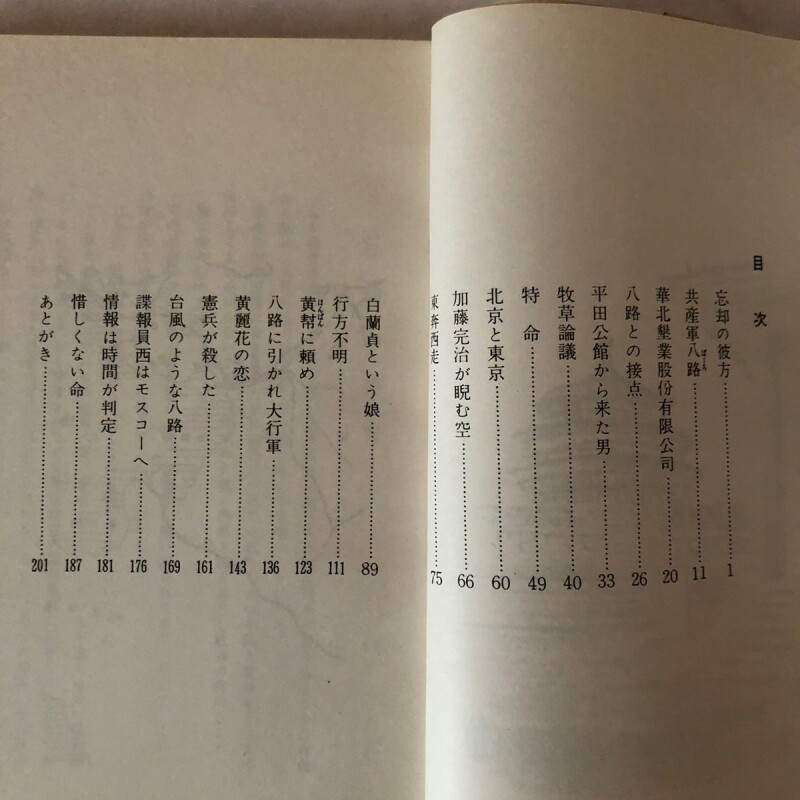 目次
忘却の彼方……1
共産軍八路……11
ぱーろ
華北墾業股份有限公司……20
八路との接点……26
平田公館から来た男……33
牧草論議……40
特命……49
北京と東京……60
加藤完治が睨む空……66
東奔西走……75
白蘭貞という娘……89
行方不明……111
黄幇に頼め……123
ほんぱん
八路に引かれ大行軍……136
黄麗花の恋……143
憲兵が殺した……161
台風のような八路……169
諜報員西はモスコーへ……176
情報は時間が判定……181
惜しくない命……187
あとがき……201